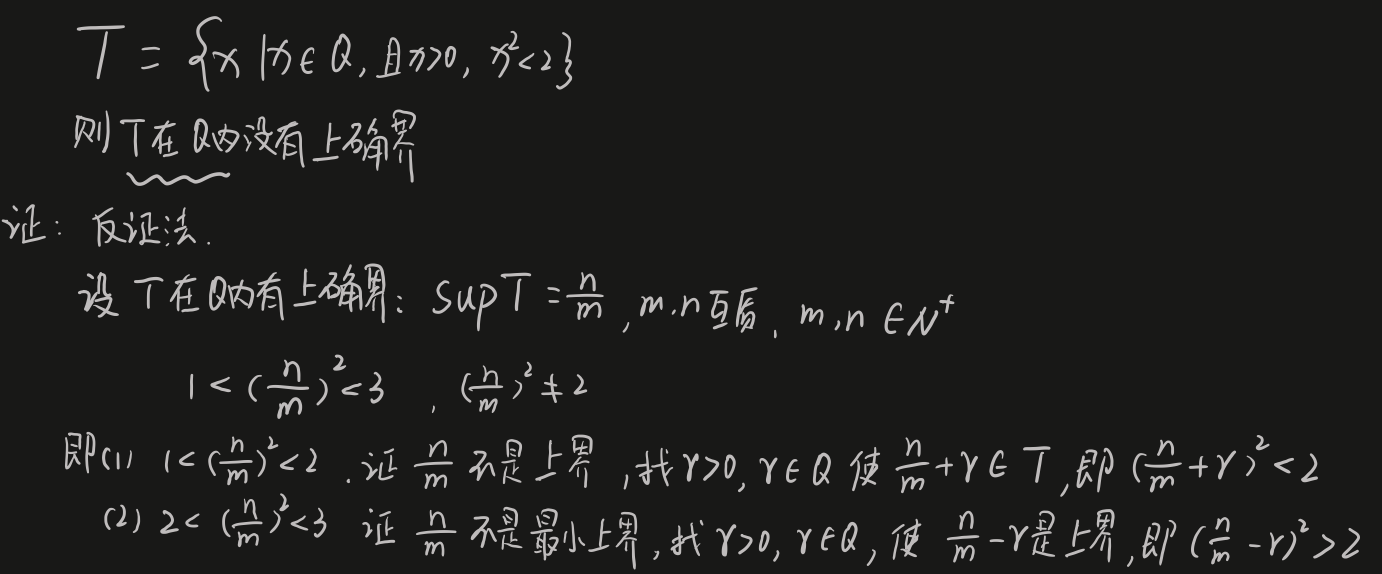 T = {x | x ∈ Q, 且x>0, x²<2}
则T在Q内没有上确界
证: 反证法.
设 T在Q内有上确界: sup T = n/m , m.n互质, m,n ∈ N⁺
1 < (n/m)² < 3 , (n/m)² ≠ 2
即(1) 1 < (n/m)² < 2 . 证 n/m 不是上界, 找 r>0, r∈Q 使 n/m + r ∈ T, 即 (n/m + r)² < 2
(2) 2 < (n/m)² < 3 证 n/m 不是最小上界, 找 r>0, r∈Q, 使 n/m - r是上界, 即 (n/m - r)² > 2